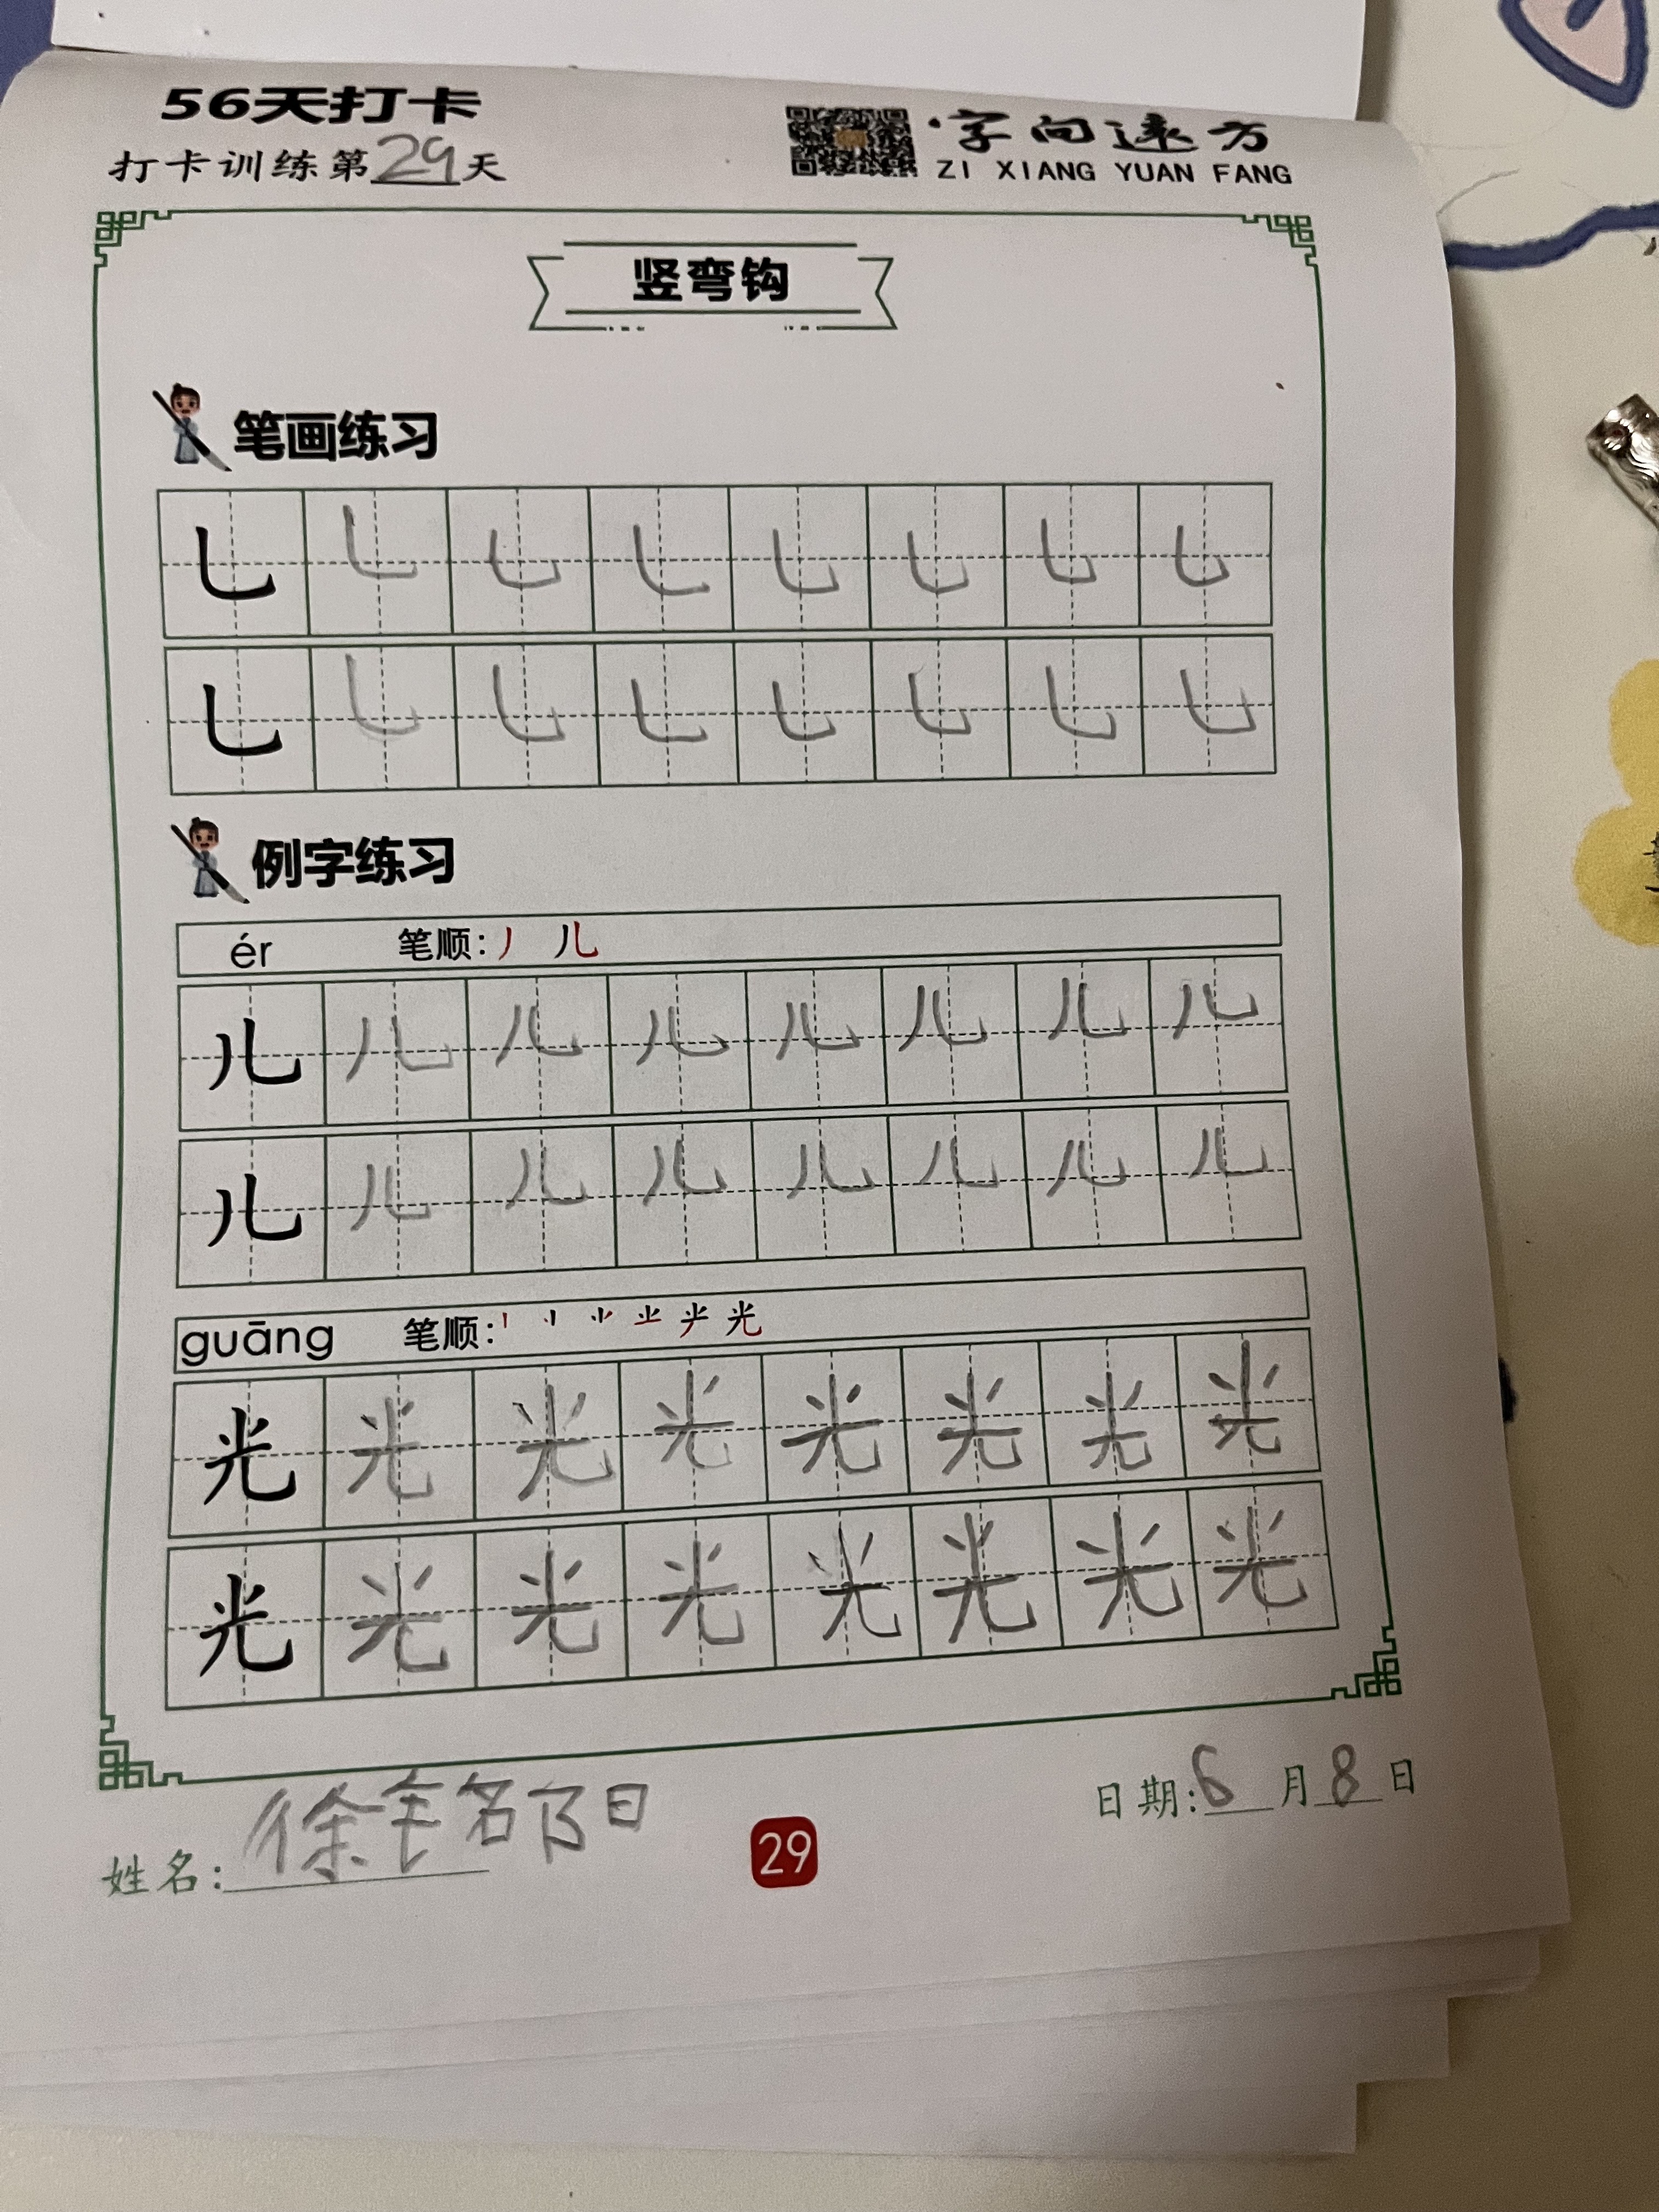 56天打卡
打卡训练第29天
字向远方
ZI XIANG YUAN FANG
竖弯钩
笔画练习
乚 乚 乚 乚 乚 乚 乚 乚
乚 乚 乚 乚 乚 乚 乚 乚
例字练习
ér 笔顺: 丿 儿
儿 儿 儿 儿 儿 儿 儿 儿
儿 儿 儿 儿 儿 儿 儿 儿
guāng 笔顺: 光
光 光 光 光 光 光 光 光
光 光 光 光 光 光 光 光
日期:6月8日
姓名:徐
29